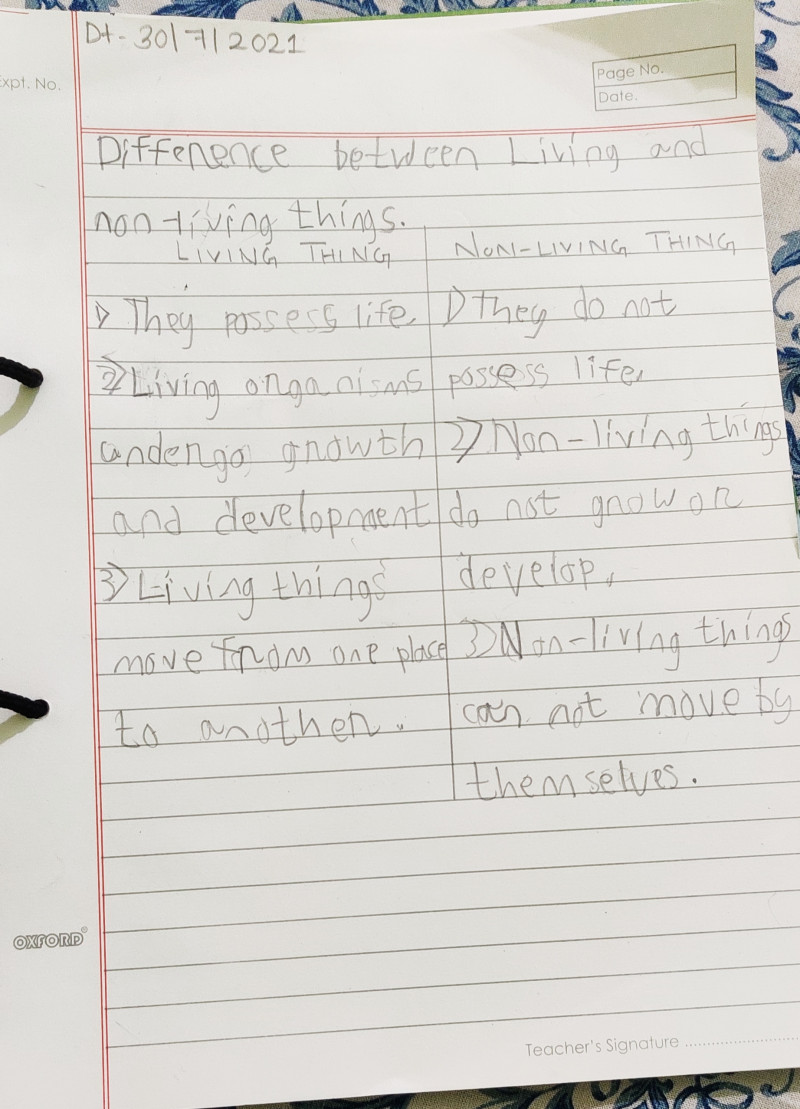 Dt - 30/7/2021
Expt. No.
Page No.
Date.
Difference between Living and
non-living things.
LIVING THING
1) They possess life.
2) Living organisms
andengo growth
and development
3) Living things
move from one place
to another.
NON-LIVING THING
1) They do not
possess life.
2) Non-living things
do not grow or
develop.
3) Non-living things
can not move by
themselves.
OXFORD
Teacher's Signature ........................